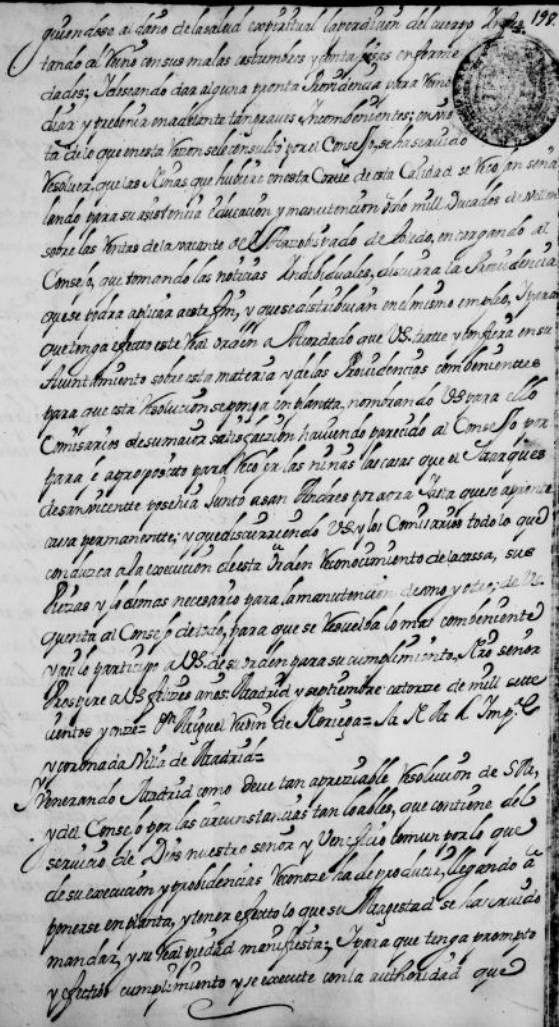 guiendose al daño de la salud espiritual la perdicion del cuerpo 198
tando al Reino con sus malas costumbres y contaxiosas enferme
dades; I deseando dar alguna pronta Providencia para Reme
diar y prebenir en adelante tan graves Incombenientes; en vis
ta de lo que en esta Razon sele consultó por el Consejo, se ha servido
Resolver, que las Niñas que hubiere en esta Corte de esta Calidad se Recojan señа
lando para su asistencia educacion y manutencion ocho mill Ducados de Vellon
sobre las Rentas de la vacante del Arzobispado de Toledo, encargando al
Consejo, que tomando las noticias Indibiduales, discurra la Providencia
que se podra aplicar a este fin, y que se distribuian en el mismo empleo, I para
que tenga efecto este Real orden a Acordado que VS. trate y confiera en su
Aiuntamiento sobre esta materia y de las Providencias combenientes
para que esta Resolucion se ponga en plantta, nombrando VS para ello
Comisarios de su maior satisfaczion haviendo parecido al Consejo por
para e aproposito para Recojer las niñas las casas que el Marques
de san vicentte posehia Junto a san Andres por aora Hasta que se apronte
cassa permanentte; y que discurriendo VS. y los Comisarios todo lo que
conduzca a la execucion de esta orden Reconocimiento de la cassa, sus
Piezas y lo demas necesario para la manutencion de uno y otro; de VS.
quenta al Consejo de todo, para que se Resuelba lo mas combeniente
y asi lo participo a VS. de su orden para su cumplimiento, Nro señor
Prospere a VS felizes años Madrid y septiembre catorze de mill sette
cientos y onze= Dn Miguel Rubin de Noriega= A la M. N. L. Imp.l
y coronada Villa de Madrid=
Y Venerando Madrid como deve tan apreziable Resolucion de S.M.,
y del Consejo por las circunstancias tan loables, que contiene del
servicio de Dios nuestro señor y Veneficio comun por lo que
de su execucion y probidencias Reconoze ha de producir, llegando â
ponerse en planta, y tener efecto lo que su Magestad se ha servido
mandar, y su Real piedad manifiesta; I para que tenga prompto
y efectivo cumplimiento y se execute con la authoridad que